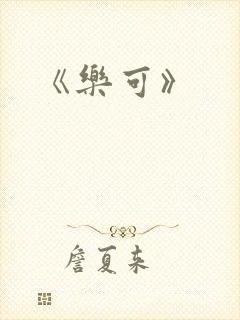 《樂可》
詹夏来